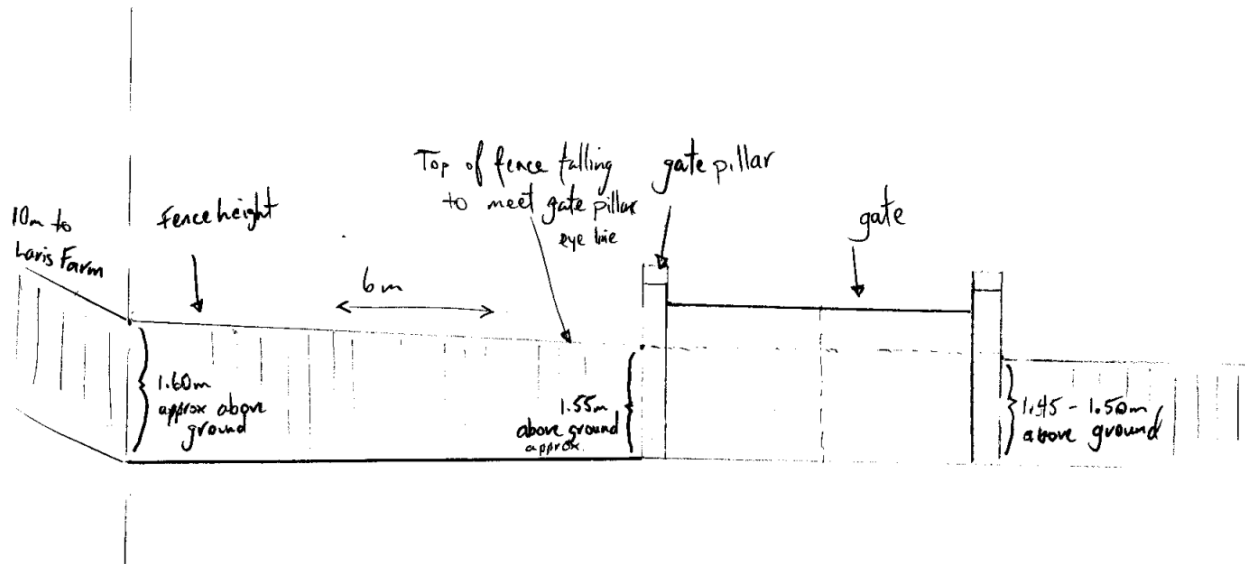 10m to
Laris Farm
Fence height
6m
Top of fence falling
to meet gate pillar
eye line
gate pillar
gate
1.60m
approx above
ground
1.55m
above ground
approx.
1.45 - 1.50m
above ground